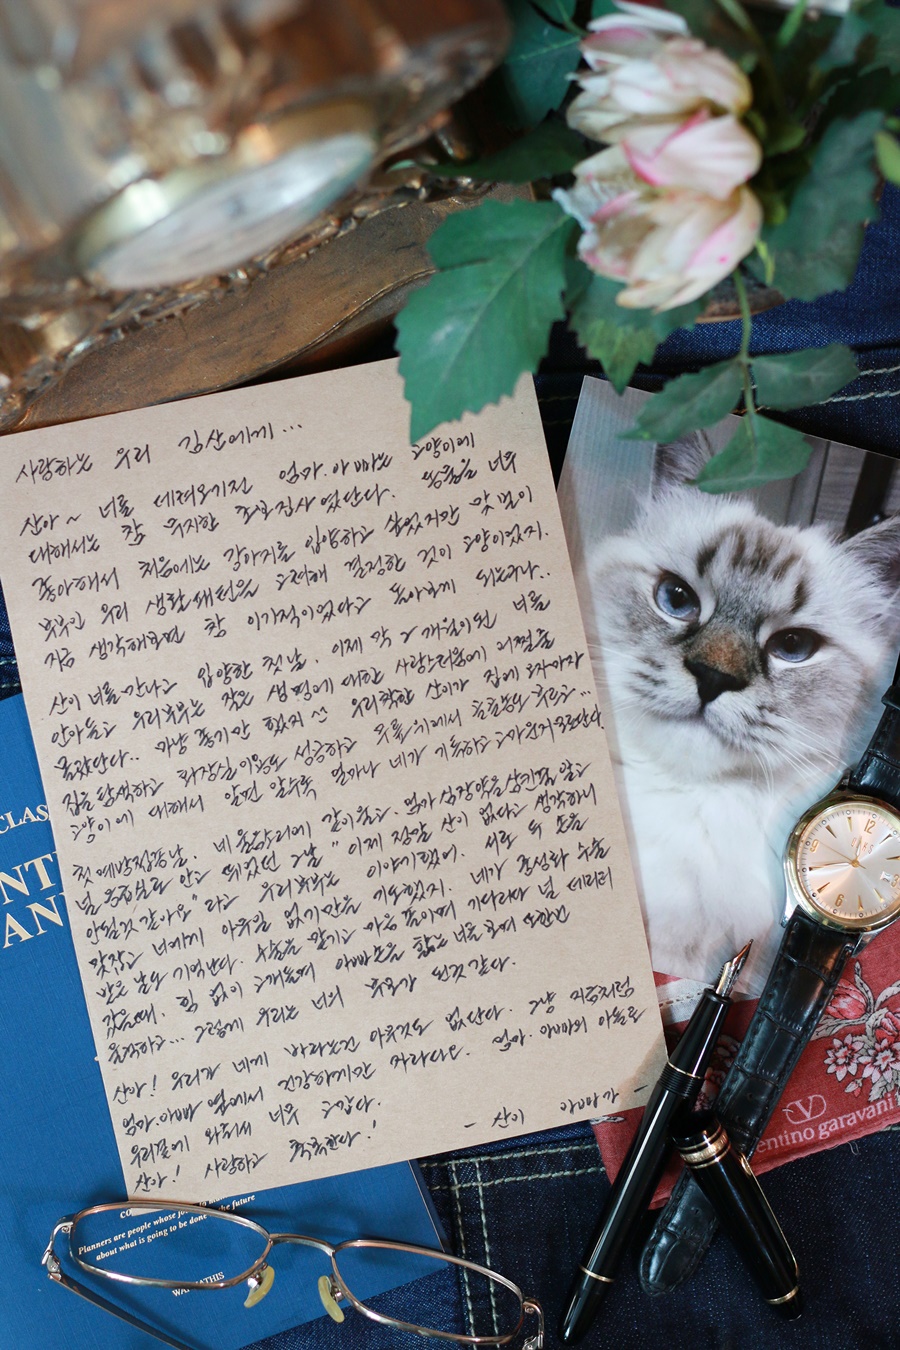 사랑하는 우리 김산에게...
산아~ 너를 데려오기전 엄마.아빠는 고양이에
대해서는 참 무지한 초보집사였단다. 동물을 너무
좋아해서 처음에는 강아지를 입양하고 싶었지만 맞벌이
부부인 우리 생활패턴을 고려해 결정한 것이 고양이었지.
지금 생각해보면 참 이기적이었다고 돌아보게 되는구나..
산이 너를 만나고 입양한 첫날. 이제 막 2개월이 된 너를
안아들고 우리부부는 작은 생명에 대한 사랑스러움에 어쩔줄을
몰랐단다.. 마냥 좋기만 했지^^ 우리착한 산이가 집에 오자마자
집을 탐색하고 화장실 이용도 성공하고 우릴 위해서
고양이에 대해서 알면 알수록 얼마나 네가 기특하고 고마운지 모른단다.
첫 예방접종날. 비올함리에 같이울고. 엄마 심장약을 삼키면
널 응급실로 안고 뛰었던 그날 "이제 정말 산이 없다고 생각하니
안될것 같아요" 라고 우리부부는 이야기했어. 서로 두 손을
맞잡고 너에게 아무일 없기만을 기도했지. 네가 중성화 수술
받은 날도 기억난다. 수술을 맡기고 마음 졸이며 기다리다 널 데리러
갔을때. 힘 없이 고개들며 아빠손을 핥는 너를 보며
울컥하고... 그렇게 우리는 너의 부모가 된것 같다.
산아! 우리가 네게 바라는건 아무것도 없단다. 그냥 지금처럼
엄마.아빠 곁에서 건강하게만 자라다오. 엄마.아빠의 아들로
우리곁에 와줘서 너무 고맙다.
산아! 사랑하고 축복한다!
- 산이 아빠가 -
CLAS
NT
AN
CO
Planners are people whose jo
about what is going to be done the future
WA MATHIS
12
V
entino garavani